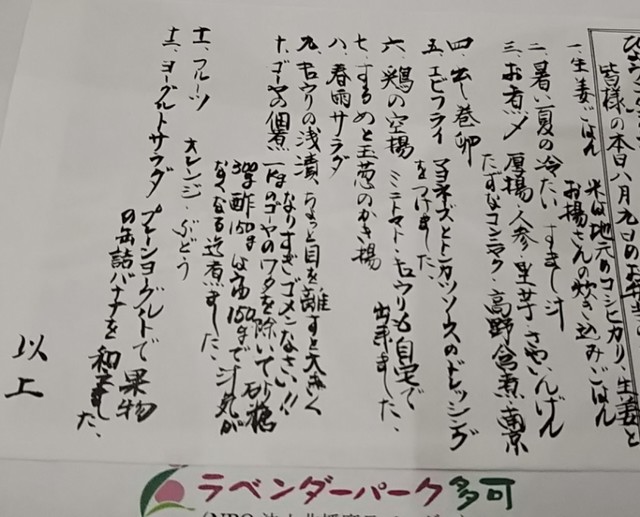 皆様の本日八月九日のお弁当
一、生姜ごはん 米は地元のコシヒカリ、生姜と
お揚さんの炊き込みごはん
二、暑い夏の冷たいすまし汁
三、お煮〆 厚揚・人参・里芋・さやいんげん
たずなコンニャク・高野含煮・南京
四、出し巻卵
五、エビフライ マヨネーズとトンカツソウスのドレッシング
をつけました、
六、鶏の空揚 ミニトマト・キュウリも自宅で
出来ました、
七、するめと玉葱のかき揚
八、春雨サラダ
九、キュウリの浅漬、ちょっと目を離すと大きく
なりすぎゴメンなさい!!
十、ゴーヤの佃煮 一kgのゴーヤのワタを除いて砂糖
300g酢150gしょう油150gで汁気が
なくなる迄煮ました、
十一、フルーツ オレンジ・ぶどう
十二、ヨーグルトサラダ プレーンヨーグルトで果物
の缶詰バナナを和えました、
以上
ラベンダーパーク多可